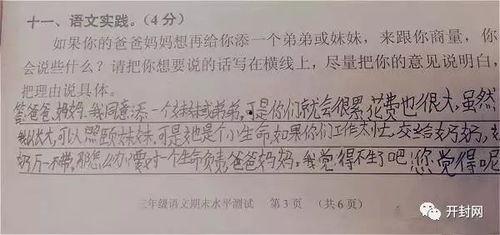 十一、语文实践。(4分)
如果你的爸爸妈妈想再给你添一个弟弟或妹妹,来跟你商量,你
会说些什么?请把你想要说的话写在横线上,尽量把你的意见说明白,
把理由说具体。
答爸爸,妈妈,我同意添一个妹妹或弟弟,可是你们就会很累,花费也很大,虽然
我认长大,可以照顾妹妹,可是她是个小生命,如果你们工作太忙,交给奶奶,
奶万一不带,那怎么办?要对一个生命负责爸爸妈妈,我觉得不生了吧!您觉得呢
三年级语文期末水平测试 第3页 (共6页)
开封网